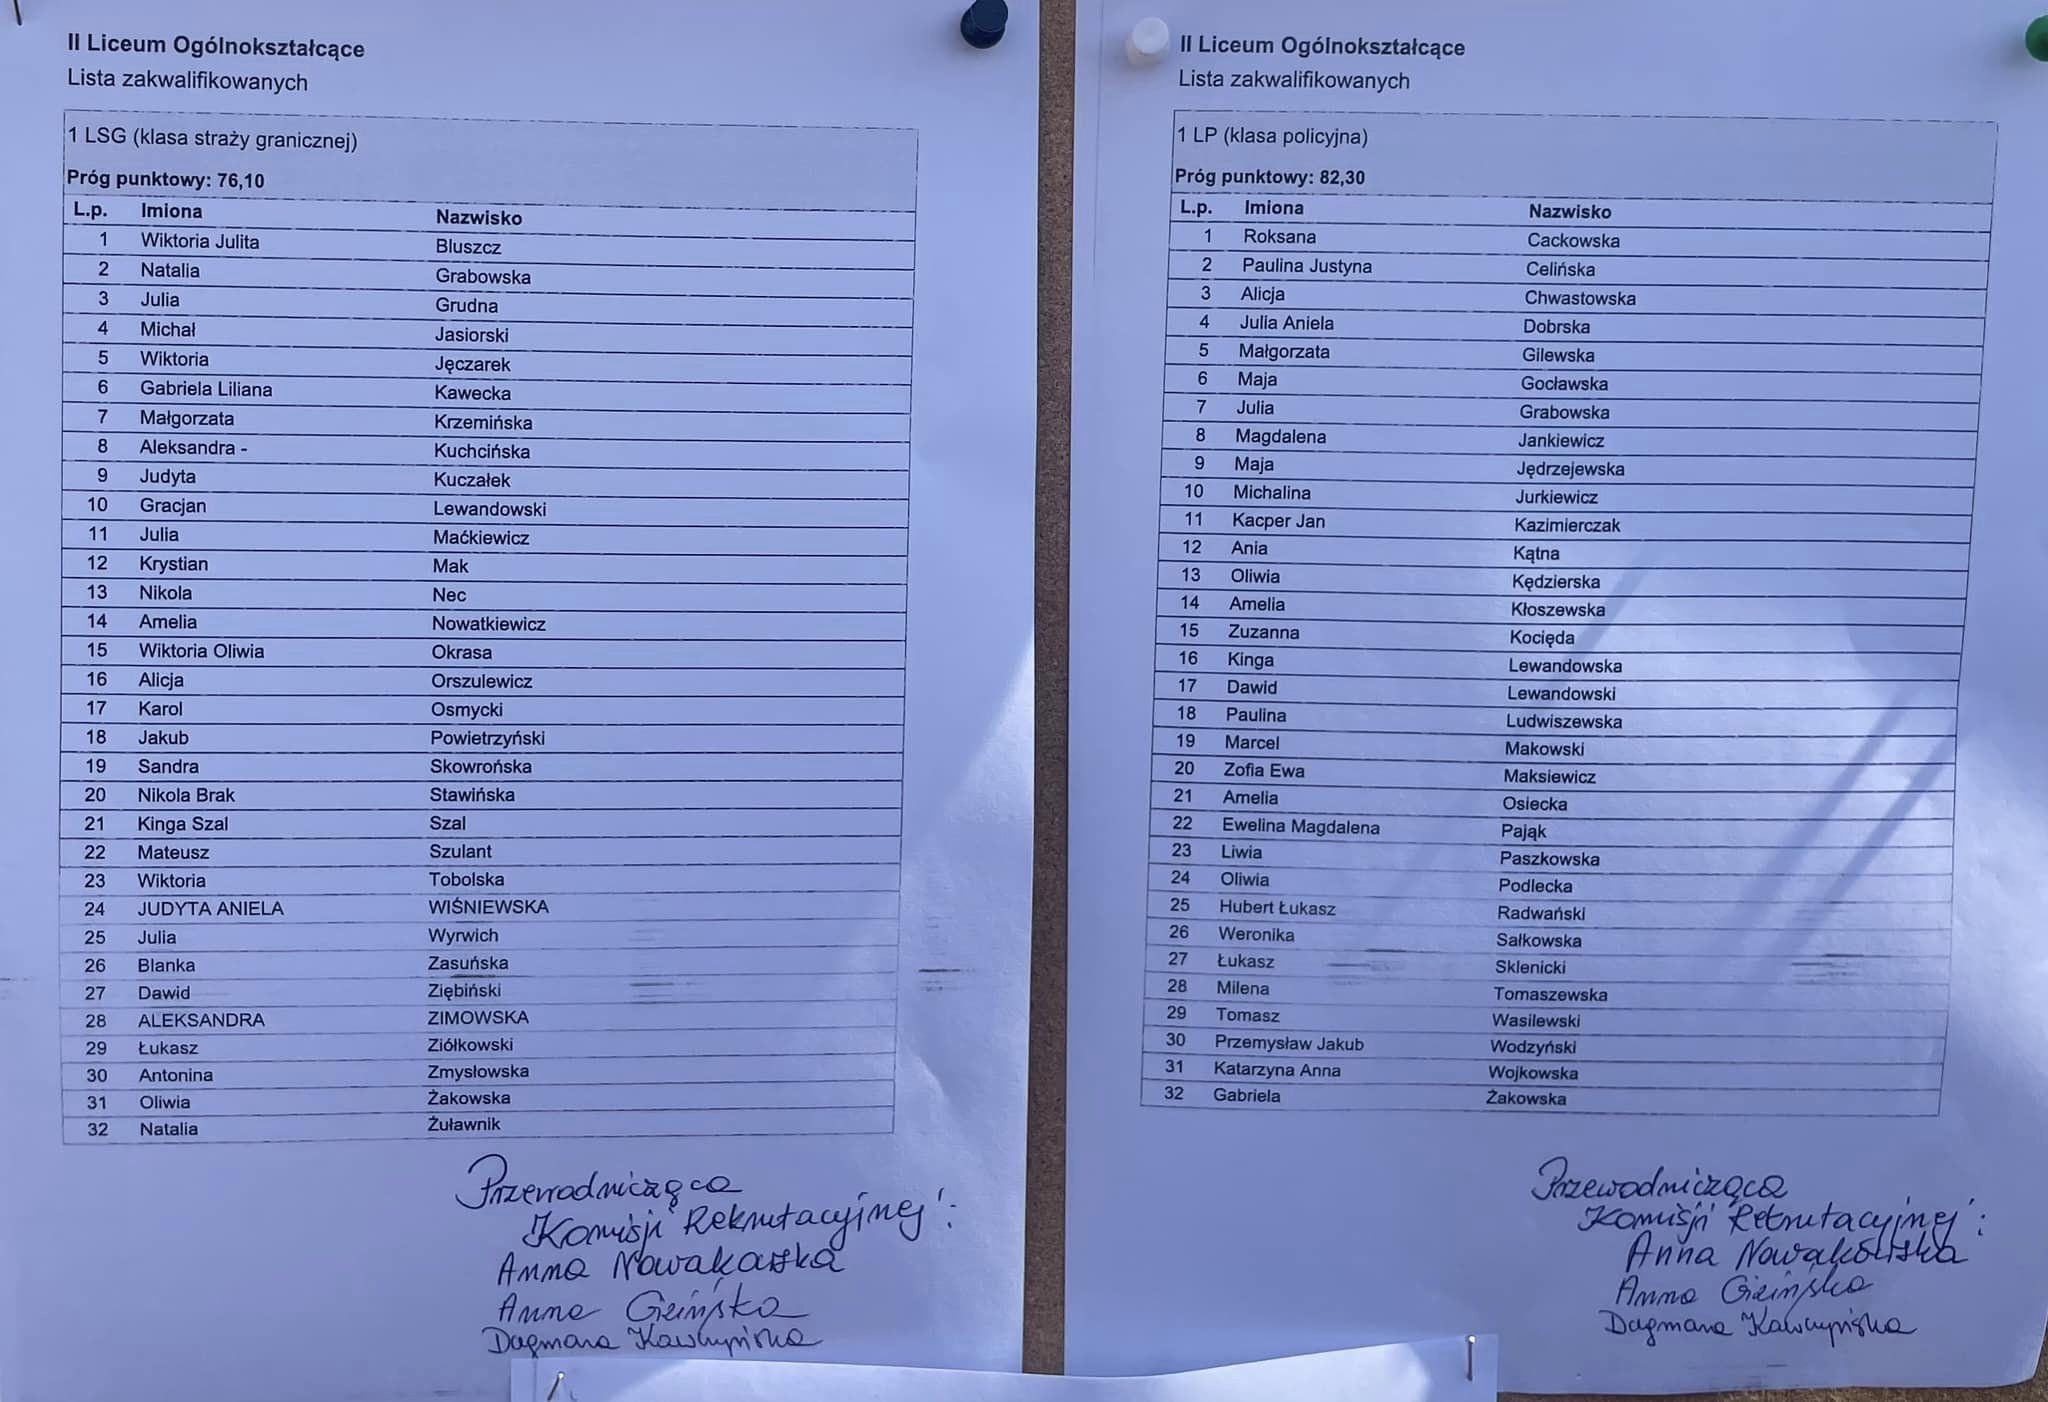 II Liceum Ogólnokształcące
Lista zakwalifikowanych
1 LSG (klasa straży granicznej)
Próg punktowy: 76,10
L.p. Imiona Nazwisko
1 Wiktoria Julita Bluszcz
2 Natalia Grabowska
3 Julia Grudna
4 Michał Jasiorski
5 Wiktoria Jęczarek
6 Gabriela Liliana Kawecka
7 Małgorzata Krzemińska
8 Aleksandra - Kuchcińska
9 Judyta Kuczałek
10 Gracjan Lewandowski
11 Julia Maćkiewicz
12 Krystian Mak
13 Nikola Nec
14 Amelia Nowatkiewicz
15 Wiktoria Oliwia Okrasa
16 Alicja Orszulewicz
17 Karol Osmycki
18 Jakub Powietrzyński
19 Sandra Skowrońska
20 Nikola Brak Stawińska
21 Kinga Szal Szal
22 Mateusz Szulant
23 Wiktoria Tobolska
24 JUDYTA ANIELA WIŚNIEWSKA
25 Julia Wyrwich
26 Blanka Zasuńska
27 Dawid Ziębiński
28 ALEKSANDRA ZIMOWSKA
29 Łukasz Ziółkowski
30 Antonina Zmysłowska
31 Oliwia Żakowska
32 Natalia Żuławnik
Przewodnicząca
Komisji Rekrutacyjnej:
Anna Nowakowska
Anna Gleińska
Dagmara Kawczyńska
II Liceum Ogólnokształcące
Lista zakwalifikowanych
1 LP (klasa policyjna)
Próg punktowy: 82,30
L.p. Imiona Nazwisko
1 Roksana Cackowska
2 Paulina Justyna Celińska
3 Alicja Chwastowska
4 Julia Aniela Dobrska
5 Małgorzata Gilewska
6 Maja Gocławska
7 Julia Grabowska
8 Magdalena Jankiewicz
9 Maja Jędrzejewska
10 Michalina Jurkiewicz
11 Kacper Jan Kazimierczak
12 Ania Kątna
13 Oliwia Kędzierska
14 Amelia Kłoszewska
15 Zuzanna Kocięda
16 Kinga Lewandowska
17 Dawid Lewandowski
18 Paulina Ludwiszewska
19 Marcel Makowski
20 Zofia Ewa Maksiewicz
21 Amelia Osiecka
22 Ewelina Magdalena Pająk
23 Liwia Paszkowska
24 Oliwia Podlecka
25 Hubert Łukasz Radwański
26 Weronika Sałkowska
27 Łukasz Sklenicki
28 Milena Tomaszewska
29 Tomasz Wasilewski
30 Przemysław Jakub Wodzyński
31 Katarzyna Anna Wojkowska
32 Gabriela Żakowska
Przewodnicząca
Komisji Rekrutacyjnej:
Anna Nowakowska
Anna
Dagmara Kawczyńska